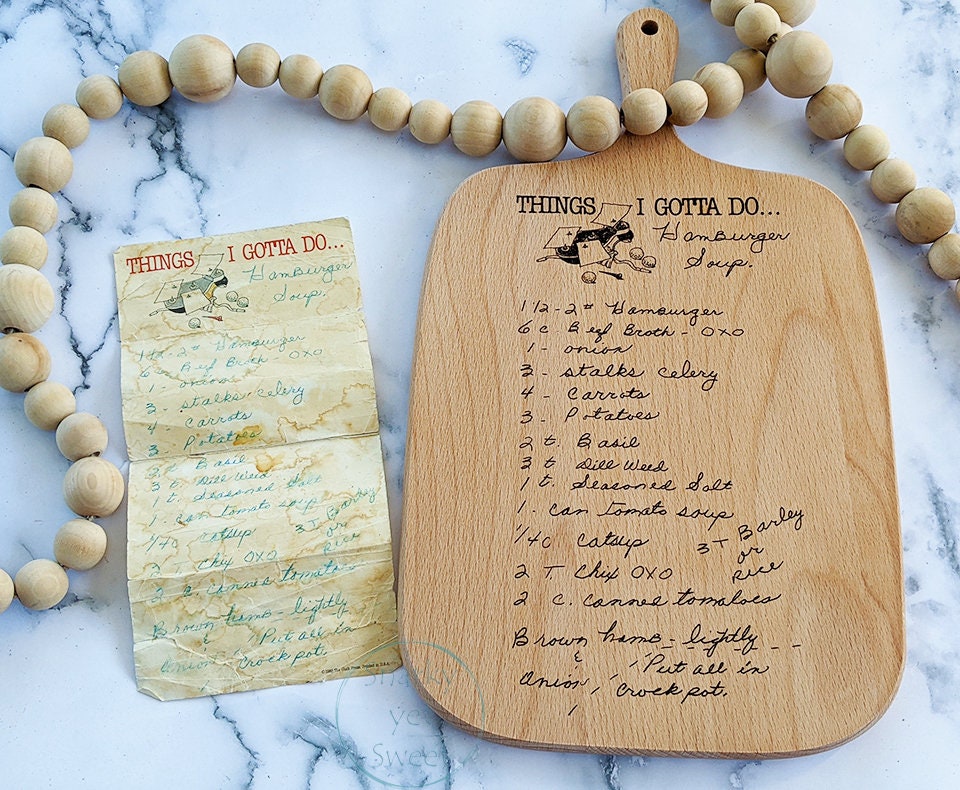 THINGS I GOTTA DO...
Hamburger
Soup.
1 1/2-2# Hamburger
6 c Beef Broth - OXO
1 - onion
3 - stalks celery
4 - Carrots
3 - Potatoes
3 t Basil
3 t. Dill Weed
1 t. Seasoned Salt
1 - can tomato soup
1/4 c Catsup
3 T Barley
or
Rice
2 T. Chix OXO
2 c. canned tomatoes
Brown hamb - lightly
&
Onion, Put all in
crock pot.
THINGS I GOTTA DO...
Hamburger
Soup.
1 1/2-2# Hamburger
6 c Beef Broth - OXO
1 - onion
3 - stalks celery
4 - Carrots
3 - Potatoes
2 t. Basil
3 t. Dill Weed
1 t. Seasoned Salt
1 - can tomato soup
1/4 c Catsup
3 T Barley
or
Rice
2 T. Chix OXO
2 c. canned tomatoes
Brown hamb - lightly
&
Onion, Put all in
crock pot.
ye
Sweet